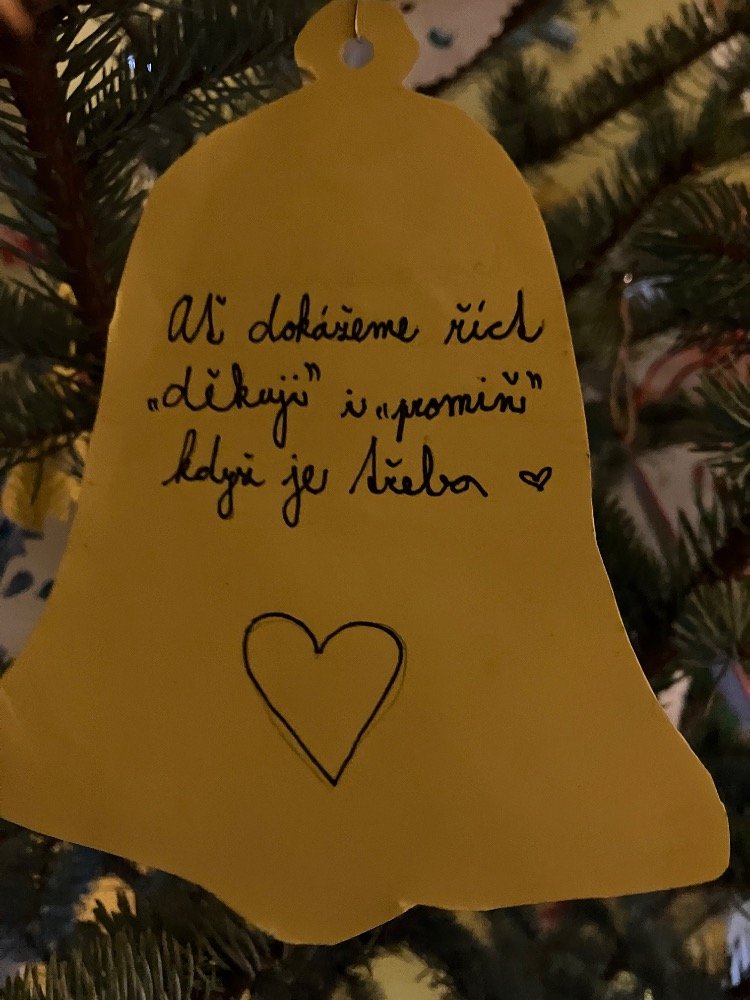 Ať dokážeme říct
„děkuji" i „promiň"
když je třeba ♡